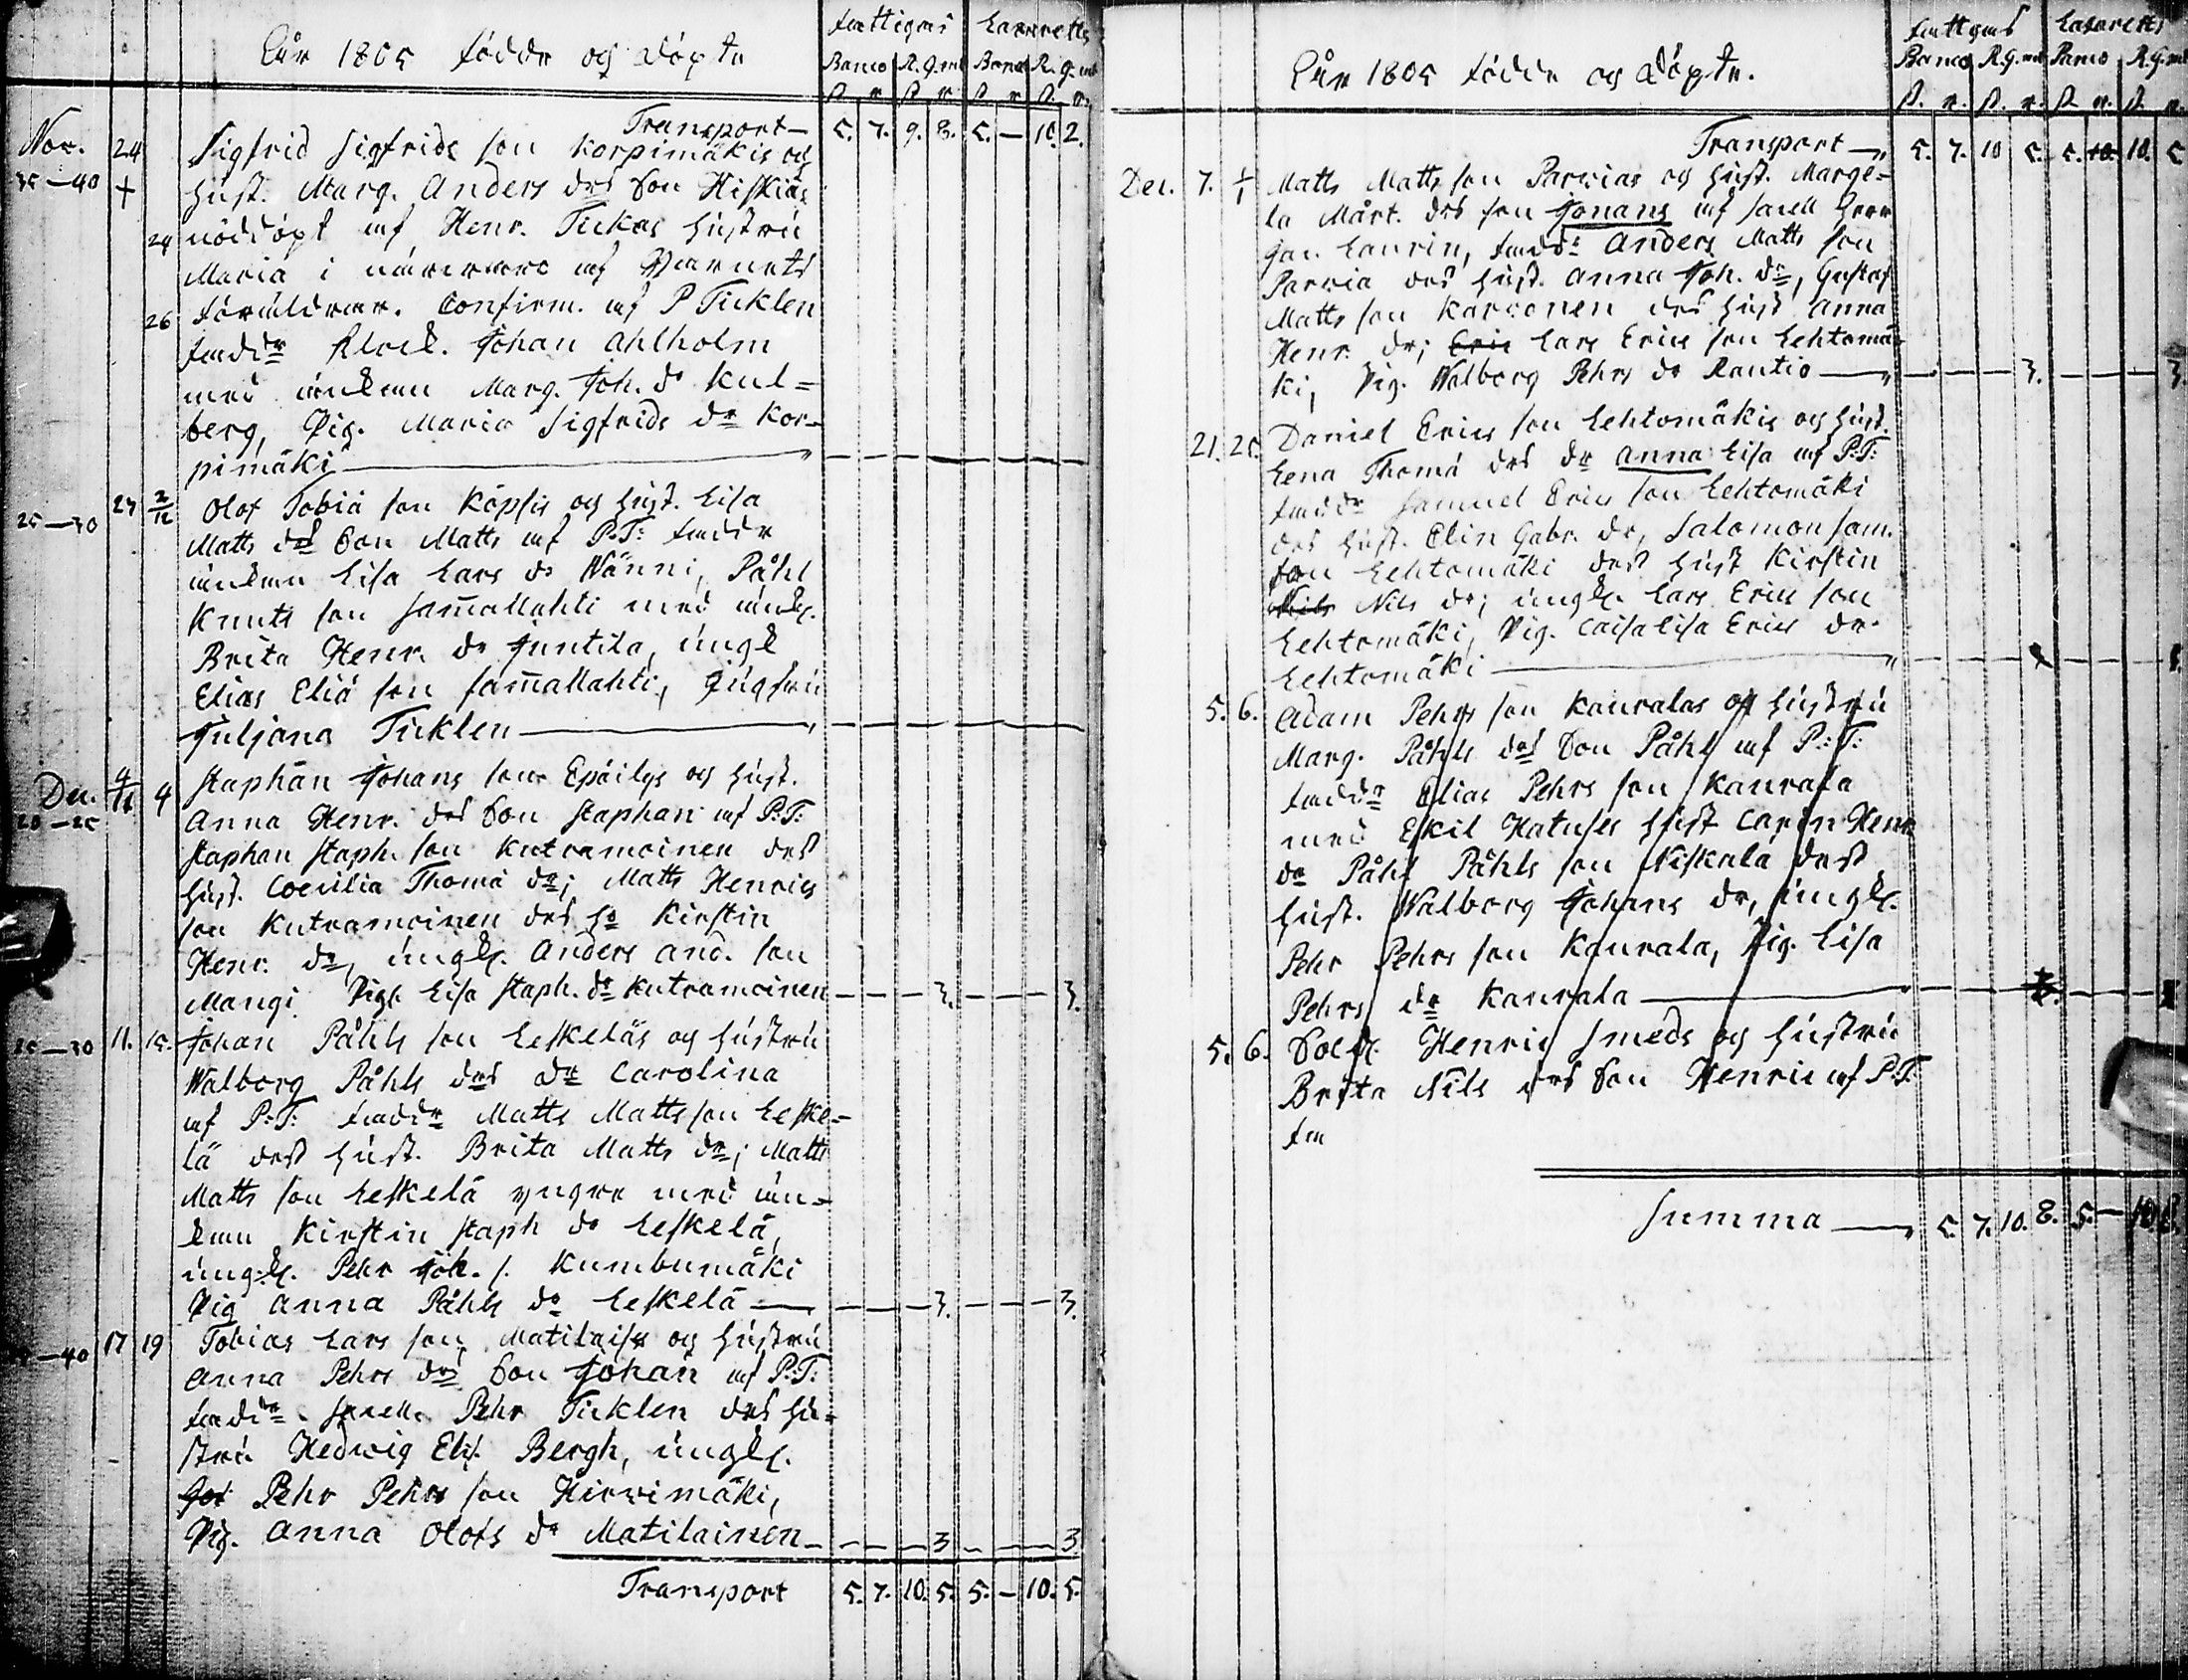 Åhr 1805 födde og Döpte
Fattigas Lazaretts
Banco R.g.md Banco R.g.md
ß. r. ß. r. ß. r. ß. r.
Transport — 5. 7. 9. 8. 5. — 10. 2.
Nov. 24 Sigfrid Sigfrids son Korpimäkis og
35—40 + hust. Marg. Anders dr Son Hiskias
24 nöddöpt af Henr. Tickas hustru
Maria i närvaro af Barnets
26 föräldrar. Confirm. af P Ticklen
faddr Klock. Johan Ahlholm
med änkan Marg. Joh. dr Kul=
berg, Pig. Maria Sigfrids dr Kor-
pimäki — — — — — — — —
25—30 27 2/12 Olof Tobiæ son Köpsis og hust. Lisa
Matts dr Son Matts af P:T: faddr
änkan Lisa Lars dr Wänni, Påhl
Knuts son Sam̄allahti med änk.
Brita Henr. dr Juntila, ungk
Elias Eliæ son Sam̄allahti, Jungfru
Juljana Ticklen — — — — — — — —
Dec. 4 Staphan Johans son Epäilys og hust.
20—25 Anna Henr. dr Son Staphan af P:T:
Staphan Staph. son Kutramoinen dess
hust. Coecilia Thomæ dr; Matts Henrics
son Kutramoinen dess hu Kirstin
Henr. dr, ungk. Anders And. son
Mangi Pig. Lisa Staph. dr Kutramoinen — — — 3. — — — 3.
25—30 11. 15. Johan Påhls son Leskeläs og hustru
Walborg Påhls dr dr Carolina
af P:T: faddr Matts Matts son Leske-
lä dess hust. Brita Matts dr; Matts
Matts son Leskelä yngre med än-
kan Kirstin Staph dr Leskelä,
ungk. Pehr Joh. s. Kumbumäki
Pig Anna Påhls dr Leskelä — — — — 3. — — — 3.
—40 17 19 Tobias Lars son Matilaises og hustru
Anna Pehrs dr Son Johan af P:T:
faddr Sacell. Pehr Ticklen dess hu-
stru Hedwig Elis. Bergh, ungk.
Pehr Pehrs son Hirvimäki,
Pig. Anna Olofs dr Matilainen — — — 3 — — — 3
Transport 5. 7. 10. 5. 5. — 10. 5.
Åhr 1805 födde og Döpte.
Fattigas Lazaretts
Banco R.g.md Banco R.g.md
ß. r. ß. r. ß. r. ß. r.
Transport — 5. 7. 10 5. 5. 10. 5
Dec. 7. 1/1 Matts Matts son Parvias og hust. Marge-
la Mårt. dr son Jonans af Sacell Herr
Gav. Laurin, faddr Anders Matts son
Parvia dess hust. Anna Joh. dr, Gustaf
Matts son Karvonen dess hust Anna
Henr. dr; Eric Lars Erics son Lehtomä-
ki, Pig. Walborg Pehrs dr Rautio — — — — 3. — — — 3.
21. 25. Daniel Erics son Lehtomäkis og hust.
Lena Thomæ dr dr Anna Lisa af P:T:
faddr Samuel Erics son Lehtomäki
dess hust. Elin Gabr. dr, Salomon Sam.
son Lehtomäki dess hust Kirstin
Nils Nils dr; ungk. Lars Erics son
Lehtomäki, Pig. Caisa Lisa Erics dr
Lehtomäki — — —
5. 6. Adam Pehrs son Kauralas og hustru
Marg. Påhls dr Son Påhl af P:T:
faddr Elias Pehrs son Kaurala
med Eskil Hatuses hust Carin Henr
dr Påhl Påhls son Niskala dess
hust. Walborg Johans dr, ungk.
Pehr Pehrs son Kaurala, Pig. Lisa
Pehrs dr Kaurala — — —
5. 6. Sold. Henric Smeds og hustru
Brita Nils dr Son Henric af P:T:
fa
Summa — 5. 7. 10. 8. 5. — 10. 8.